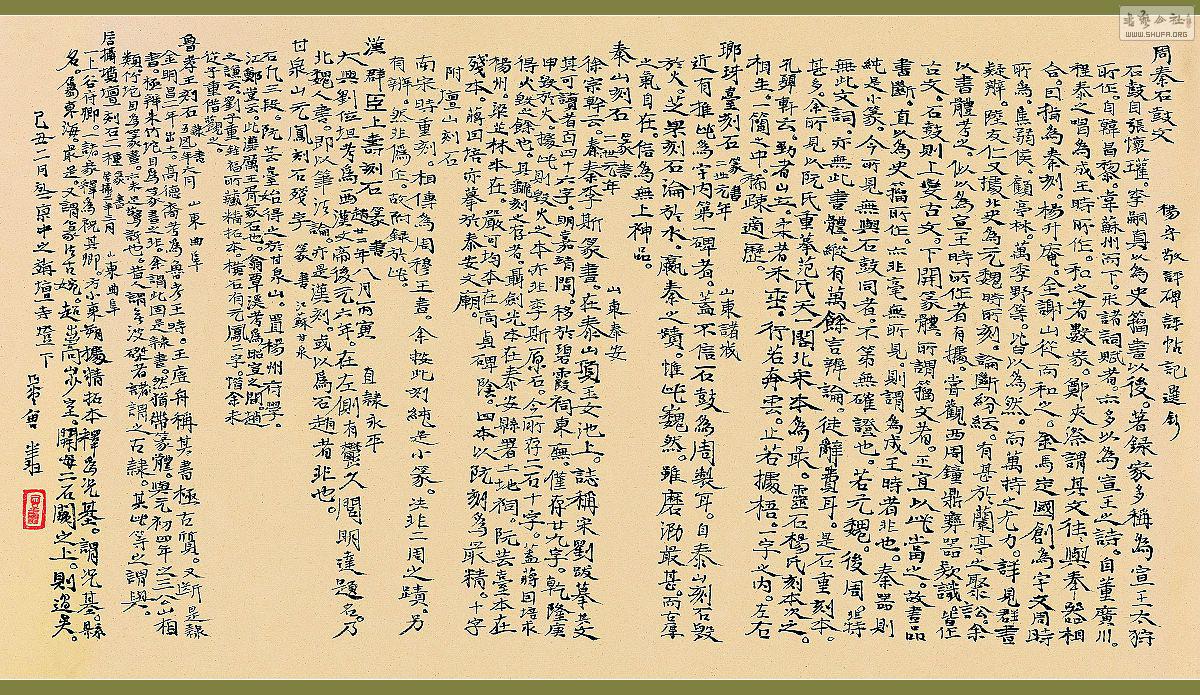 周秦石鼓文　楊守敬評碑評帖記選鈔
石鼓自張懷瓘。李嗣真以為史籀書以後。著錄家多稱為宣王太狩
所作。自韓昌黎。韋蘇州而下。形諸詞賦者。亦多以為宣王之詩。自董廣川。
程泰之唱為成王時所作。和之者數家。鄭夾漈謂其文往往與秦器相
合。因指為秦刻。楊升庵。全謝山從而和之。金馬定國創為宇文周時
所為。焦弱侯。顧亭林。萬季野等。皆以為然。而萬持之尤力。詳見群書
疑辨。陸友仁又據北史為元魏時刻。論斷紛紜。有甚於蘭亭之聚訟。余
以書體考之。似以為宣王時所作者有據。嘗觀西周鐘鼎彝器款識皆作
古文。石鼓則上變古文。下開篆體。所謂籀文者。正宜以此當之。故書品
書斷。直以為史籀所作。亦非毫無所見。則謂為成王時者非也。秦器則
純是小篆。今所見無與石鼓同者。不第無確證也。若元魏。後周。豈特
無此文詞。亦無此書體。縱有萬餘言辨論。徒辭費耳。是石重刻本。
甚多余所見以阮氏重摹范氏天一閣北宋本為最。靈石楊氏刻本次之。
孔顨軒云。勁者山立。柔者禾垂。行若奔雲。止若據梧。一字之內。左右
相生。一簡之中。稀疎適歷。
瑯琊臺刻石　篆書　二世元年　山東諸城
近有推此為宇內第一碑者。蓋不信石鼓為周製耳。自泰山刻石毀
於火。芝罘刻石淪於水。嬴秦之蹟。惟此魏然。雖磨泐最甚。而古厚
之氣自在。信為無上神品。
泰山刻石　篆書　二世元年　山東泰安
徐宗幹云。秦李斯篆書。在泰山頂玉女池上。誌稱宋劉跋摹其文
其可讀者百四十六字。明嘉靖間。移於碧霞祠東廡。僅存廿九字。乾隆庚
申毀於火。據此則毀火之本亦非李斯原石。今所存二石十字。蓋蔣因培求
得火毀之餘也。其翻刻之存者。聶劍光本在泰安縣署土地祠。阮芸臺本在
楊州。梁茝林本在。嚴可均本在高貞碑陰。四本以阮刻為最精。十字
殘本。蔣因培亦摹於泰安文廟。
附　壇山刻石
南宋時重刻。相傳為周穆王書。余按此刻純是小篆。決非二周之蹟。另
有辨。然非偽作。故附錄於此。
漢　群臣上壽刻石　篆書　趙廿二年八月丙寅　直隸永平
大興劉位坦考為西漢文帝後元六年。在左側有鬱久閭明達題名。乃
北魏人書。即以筆法論。亦是漢刻。或以為石趙者非也。
甘泉山元鳳刻石殘字　篆書　江蘇甘泉
石凡三段。阮芸臺始得之於甘泉山。置楊州府學。
江鄭堂云。此濃厲王胥冢石也。翁覃谿考為昭宣之間遺
之讓云。劉子重銓福所藏精拓本。橫石有元鳳二字。惜余未
從子重借觀之。
魯孝王刻石　隸書　五鳳二年六月　山東曲阜
金明昌二年出土。高德裔考為魯孝王時。王虛舟稱其書極古質。又斷是隸
書。極辨朱竹垞目為篆書之非。余謂此固是隸書。然猶帶篆體。與元初四年之三公山相
類。竹垞目為篆書。亦未必瞽說也。昔人謂分書多波磔者。謂之古隸。其此等之謂與。
居攝墳壇刻石二種　篆書　居攝二年二月　山東曲阜
一上谷府卿。一說家釋為祝其卿。方小東朔據精拓本釋為況基。謂況基。縣
名。屬東海最是。又謂篆法古婉。超嵩山少室。開母二石闕之上。則過矣。
己丑二月燕京中之講壇寺燈下